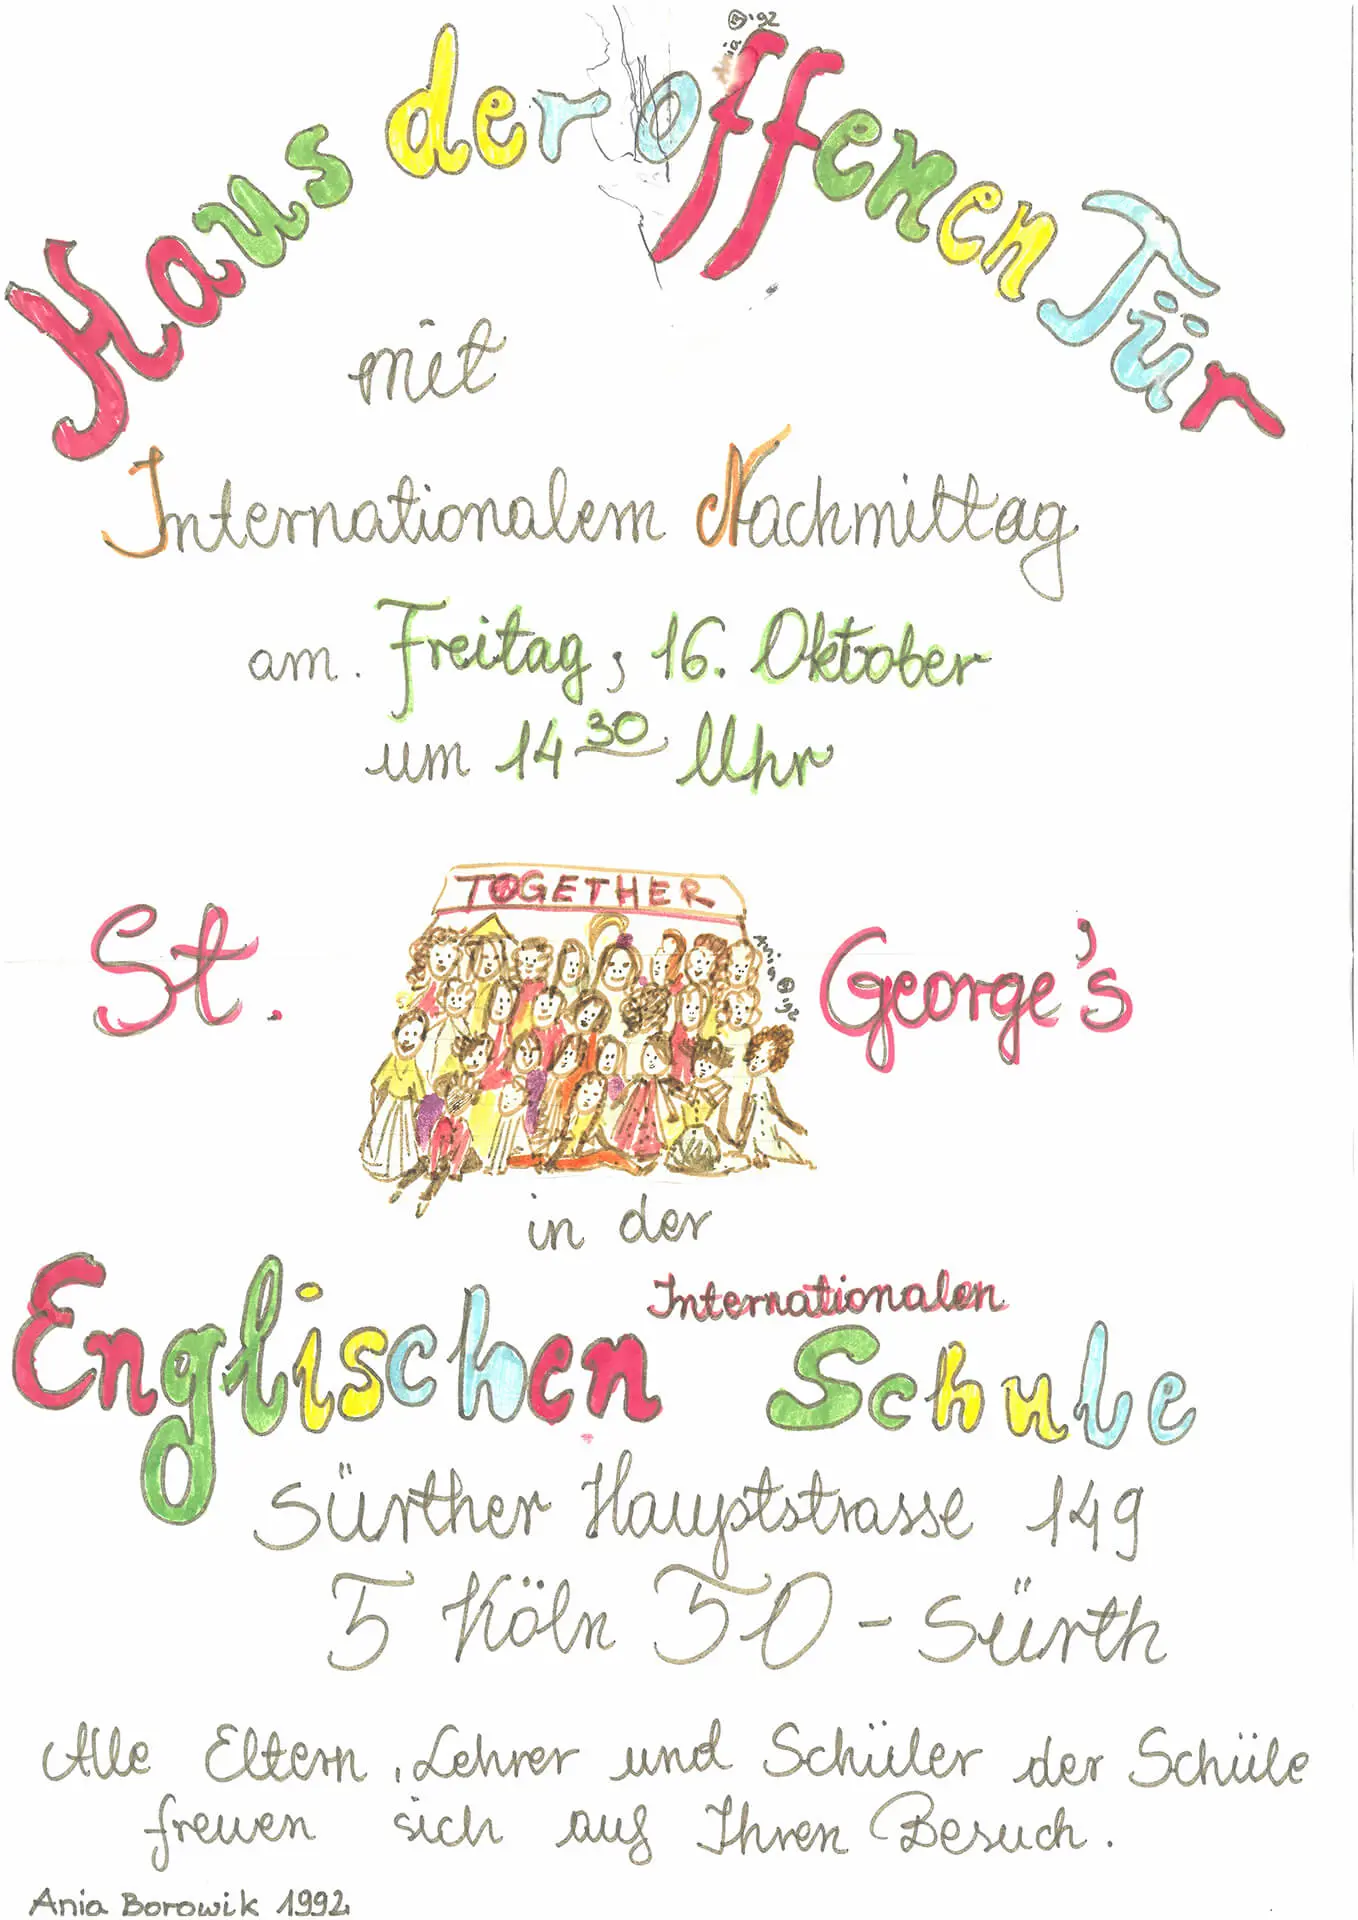 Ania ®'92
Haus der offenen Tür
mit
Internationalem Nachmittag
am. Freitag, 16. Oktober
um 14 30 Uhr
TOGETHER
St. George's
Ania ®'92
in der
Internationalen
Englischen Schule
Sürther Hauptstrasse 149
5 Köln 50 - Sürth
Alle Eltern, Lehrer und Schüler der Schüle
freuen sich auf Ihren Besuch.
Ania Borowik 1992